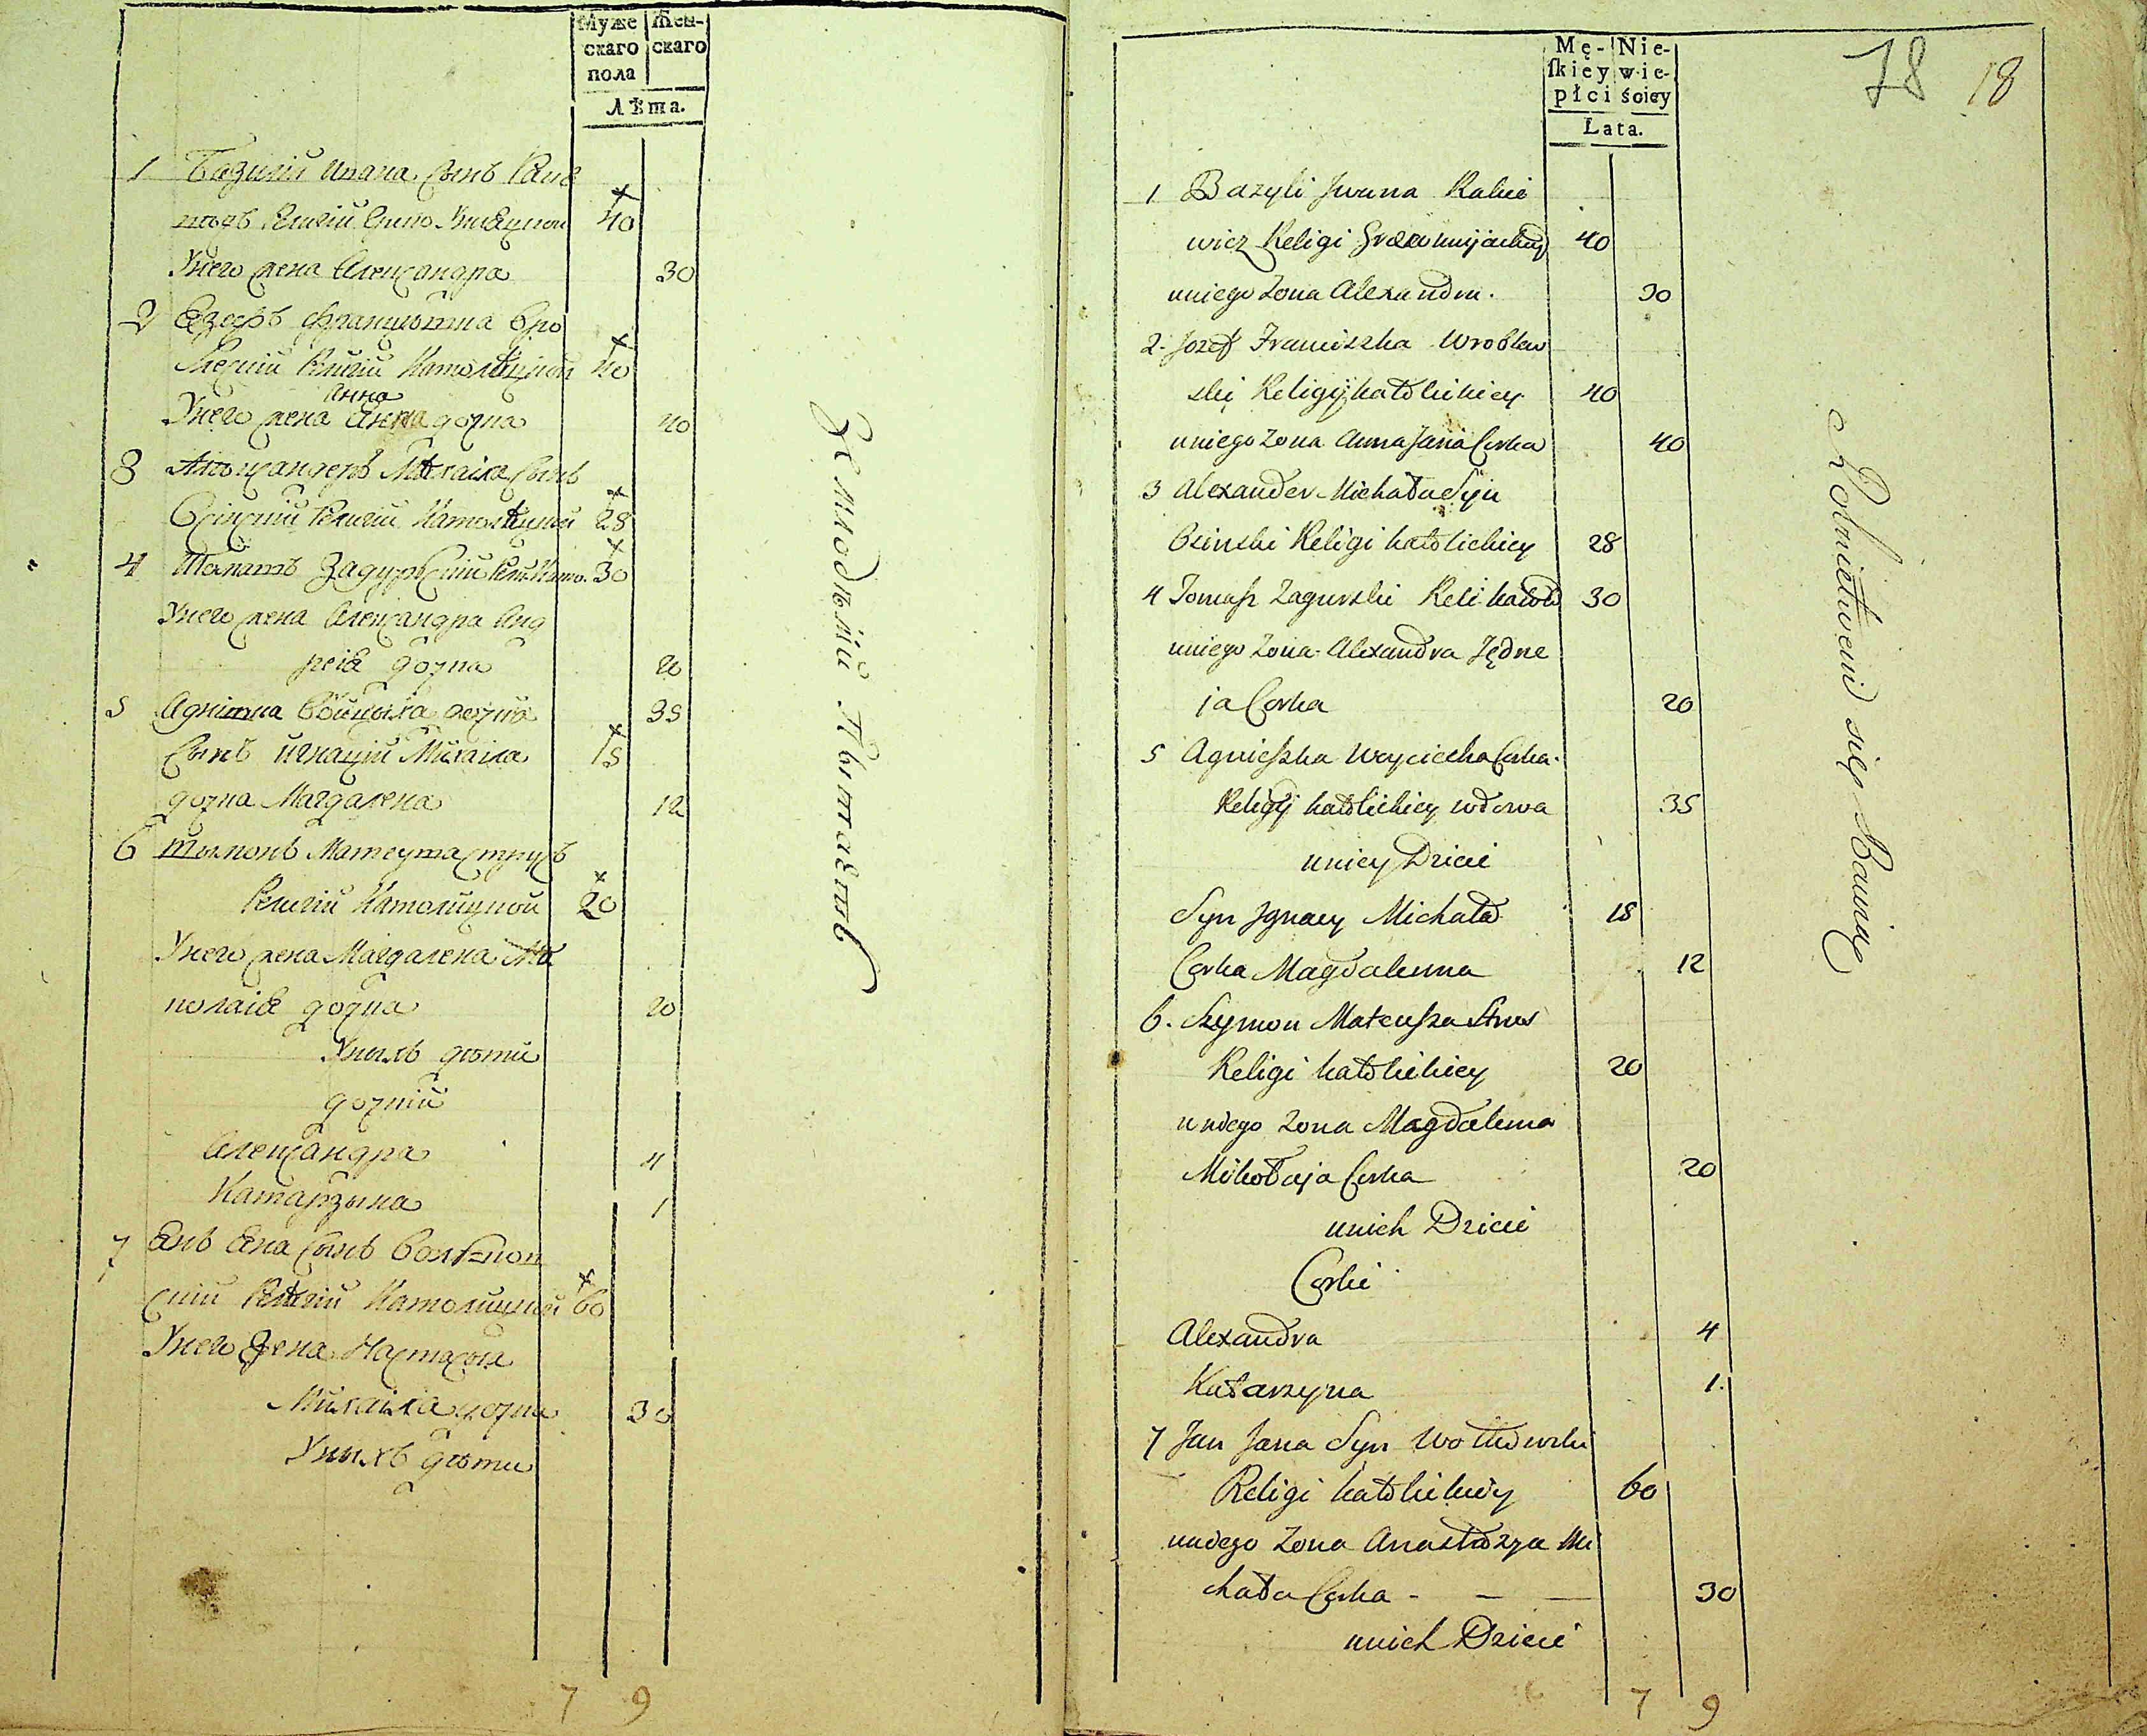 Муже Жен-
скаго скаго
пола
Лѣта.
1 Базилій Ивана сынъ Раке
40
Унего жена Александра 30
2 Езефъ Францишка Вро
Религіи Католицкой 40
Анна
Унего жена дочка 40
3 Михаила сынъ
Осинскій Религіи Католицкой 28
4 Томашъ Загурскій 30
Унего жена Александра Анд
рея дочка 20
5 Агнишка Войцеха дочка 35
Сынъ Игнацій Михаила 15
дочка Магдалена 12
6 Шымонъ Матеуша Струсъ
Религіи Католицкой 20
Унего жена Магдалена Ми
колая дочка 20
Унихъ дѣти
дочки
Александра 4
Катарзына 1
7 Янъ Яна сынъ
скій Религіи Католицкой 60
Унего жена
Михаила дочка 30
Унихъ дѣти
7 9
Mę- Nie-
ſkiey wie-
płci ściey
Lata.
78 18
1 Bazyli Jwana Rakie
wicz Religi 40
uniego Zona Alexandra. 30
2. Jozef Franciszka Wroblew
ski Religij katolickiey 40
uniego Zona Anna Jana Corka 40
3 Alexander Michała Syn
Osinski Religi katolickiey 28
4 Tomaſz Zagurski Reli katoli 30
uniego Zona Alexandra Jędrze
ja Corka 20
5 Agnieſzka Woyciecha Corka
Religij katolickiey wdowa 35
uniey Dzieci
Syn Jgnacy Michała 15
Corka Magdalenna 12
6. Szymon Mateuſza Strus
Religi katolickiey 20
uniego Zona Magdalena
Mikołaja Corka 20
unich Dzieci
Corki
Alexandra 4
Katarzyna 1.
7 Jan Jana Syn
Religi katolickiey 60
uniego Zona Anastazya Mi
chała Corka - - - 30
unich Dzieci
7 9
Rolnictwem się Bawią